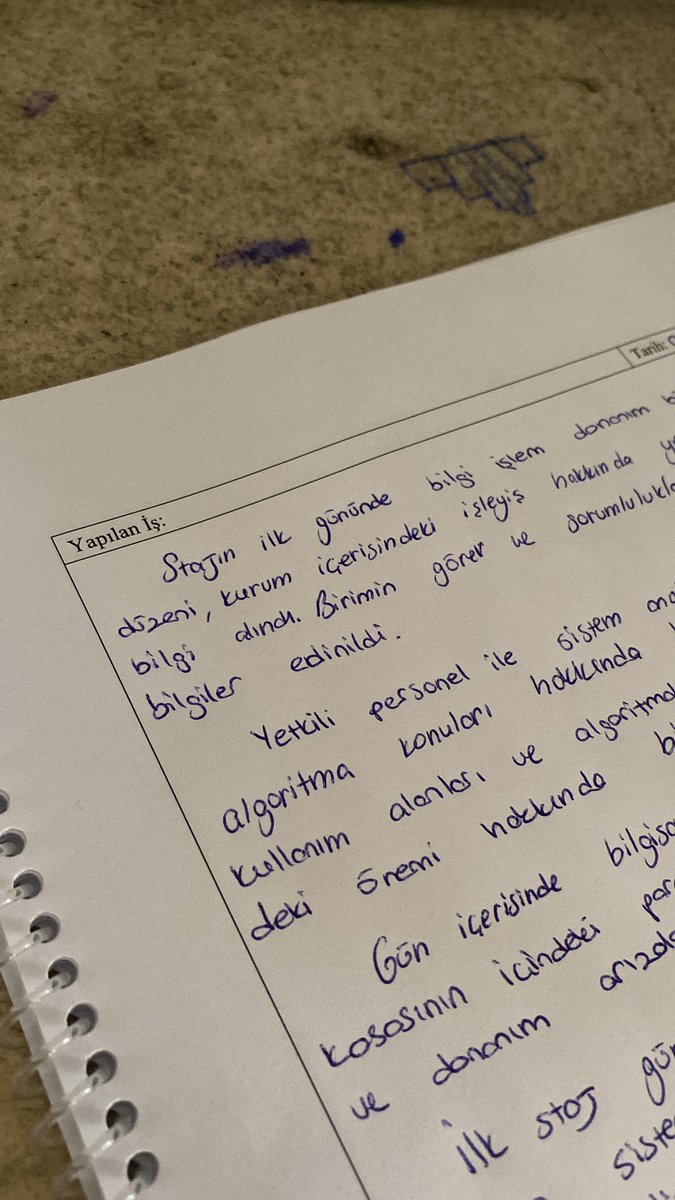 Tarih:
Yapılan İş:
Stajın ilk gününde bilgi işlem donanım
düzeni, kurum içerisindeki işleyiş hakkında
bilgi alındı. Birimin görev ve
bilgiler edinildi.
Yetkili personel ile sistem
algoritma konuları hakkında
kullanım alanları ve
deki önemi hakkında
Gün içerisinde
kasasının içindeki
ve donanım
İlk staj